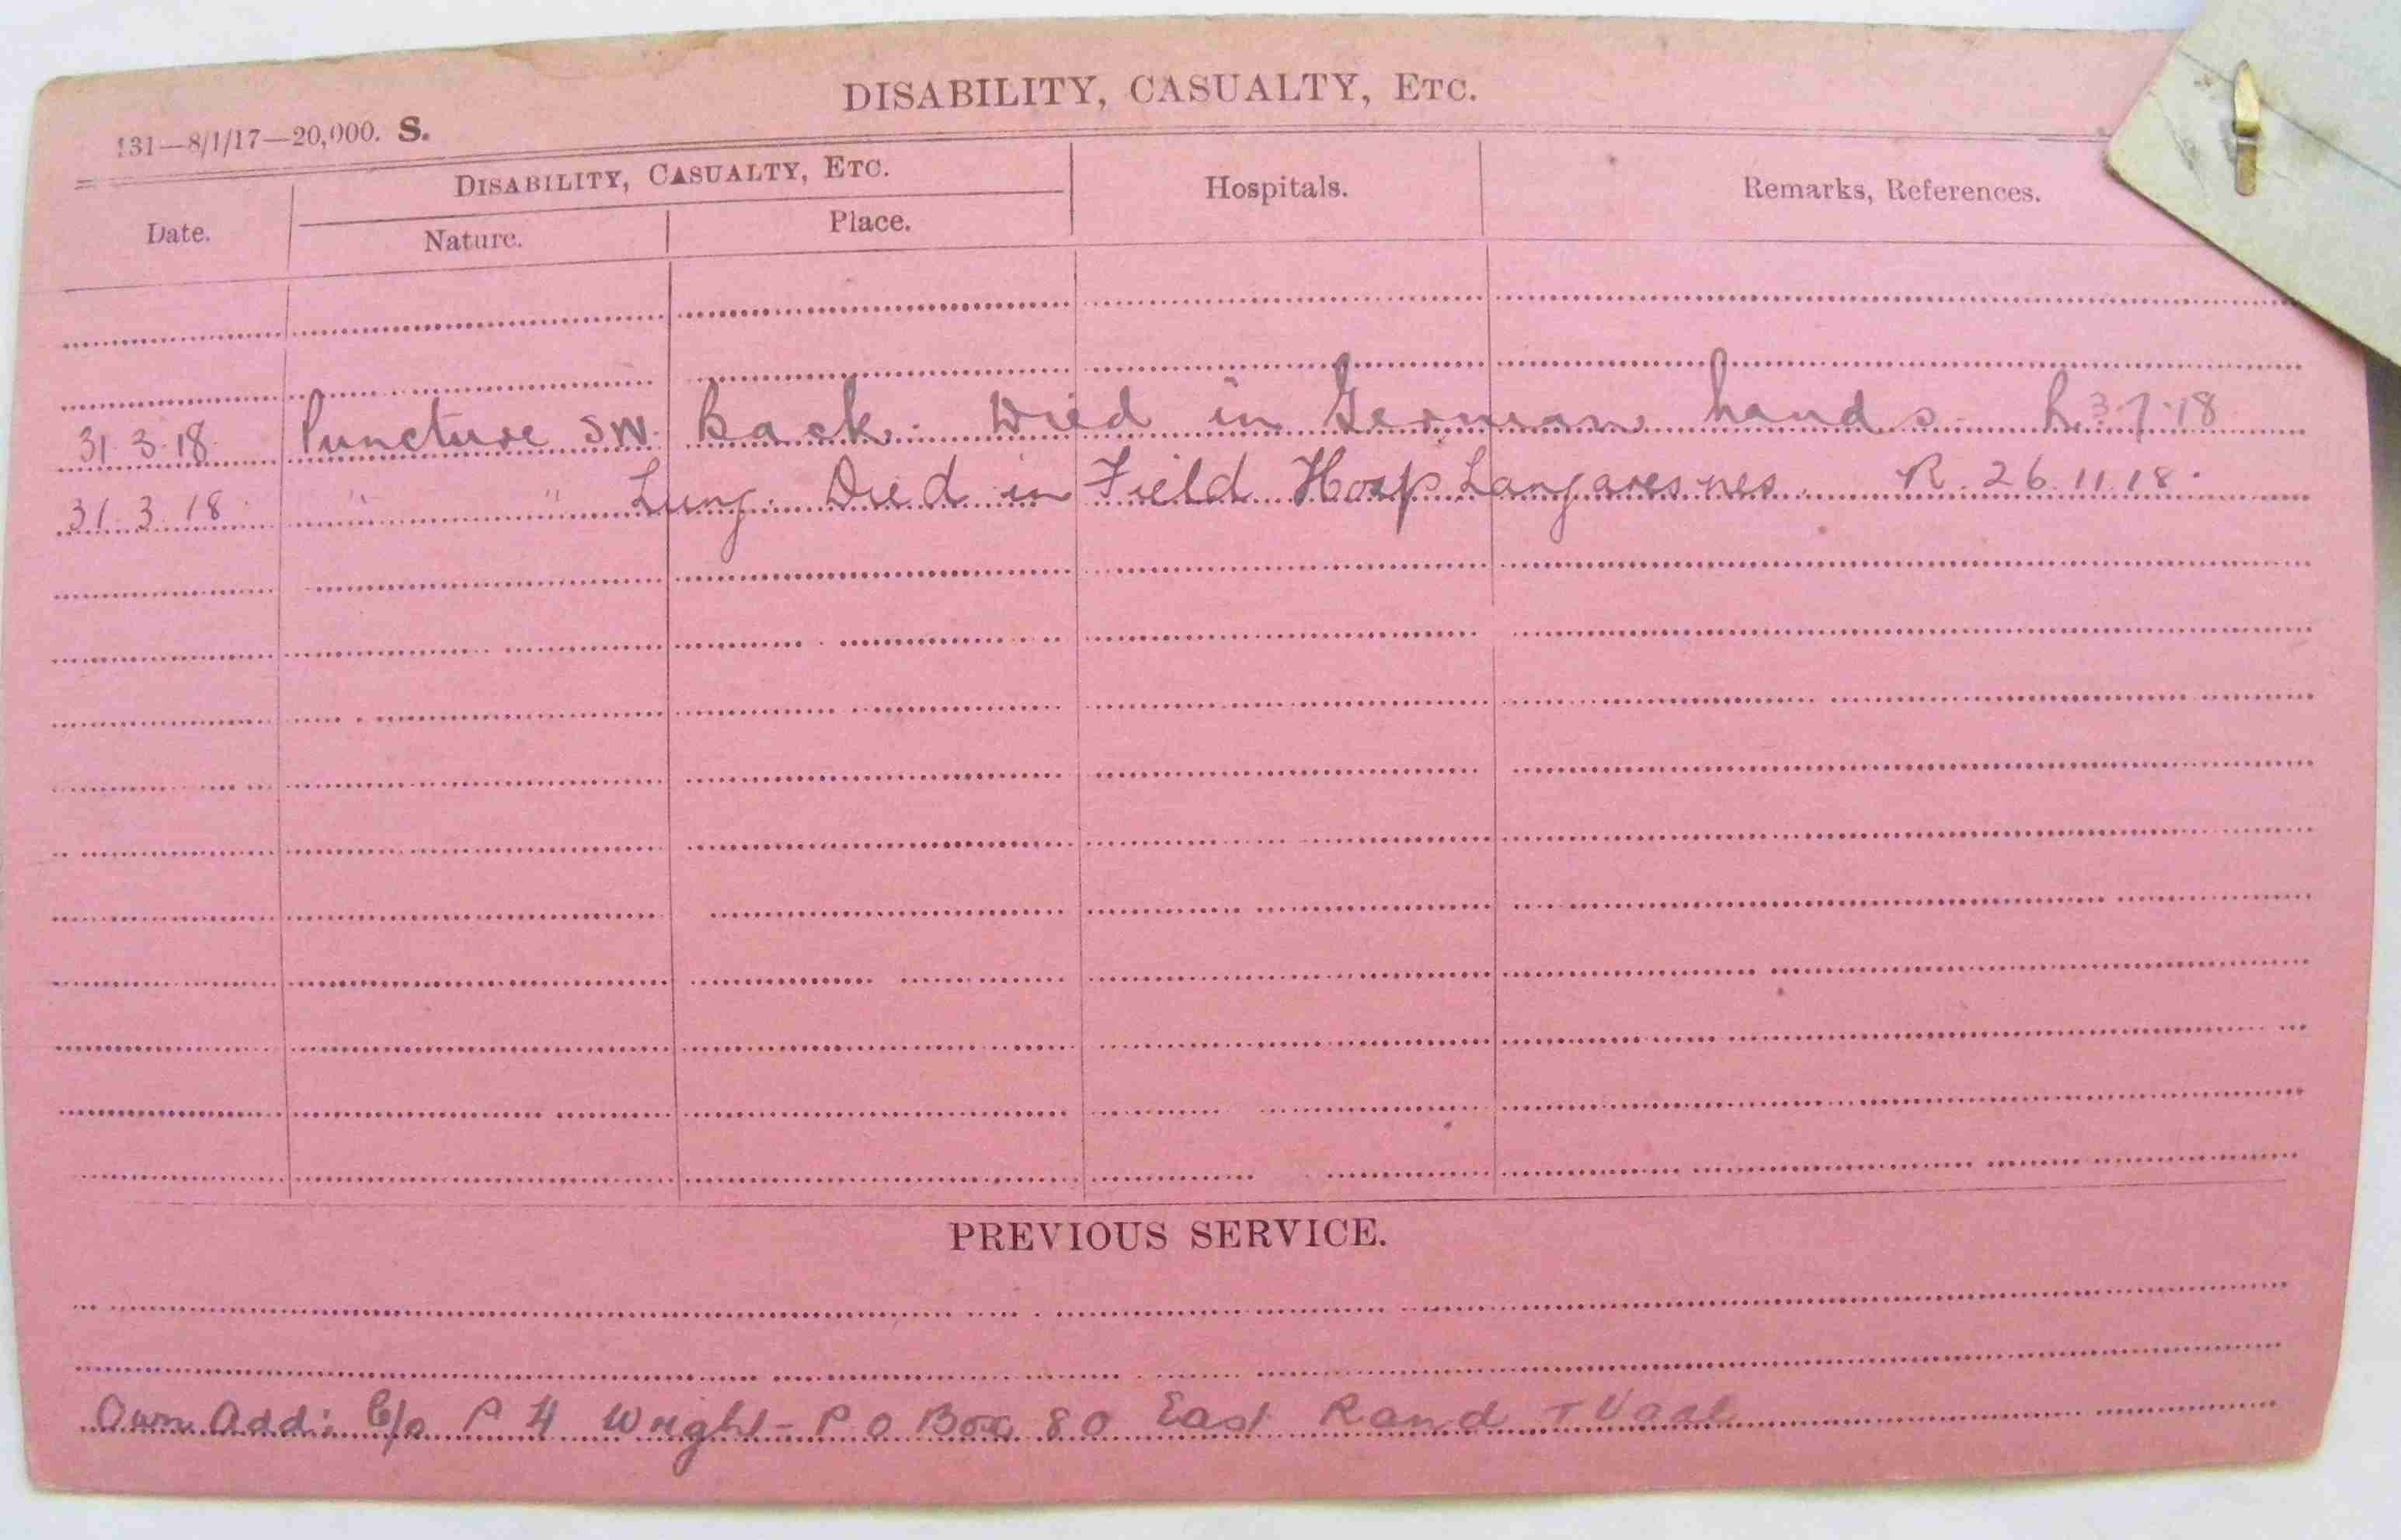 DISABILITY, CASUALTY, ETC.
131—8/1/17—20,000. S.
DISABILITY, CASUALTY, ETC.
Hospitals.
Remarks, References.
Date.
Nature.
Place.
31.3.18 Puncture SW. Back. Died in German hands. R.3.7.18
31.3.18 " " Lung. Died in Field Hosp Langavesnes. R. 26.11.18.
PREVIOUS SERVICE.
Own Add: C/o P H Wright - P O Box 80 East Rand T Vaal